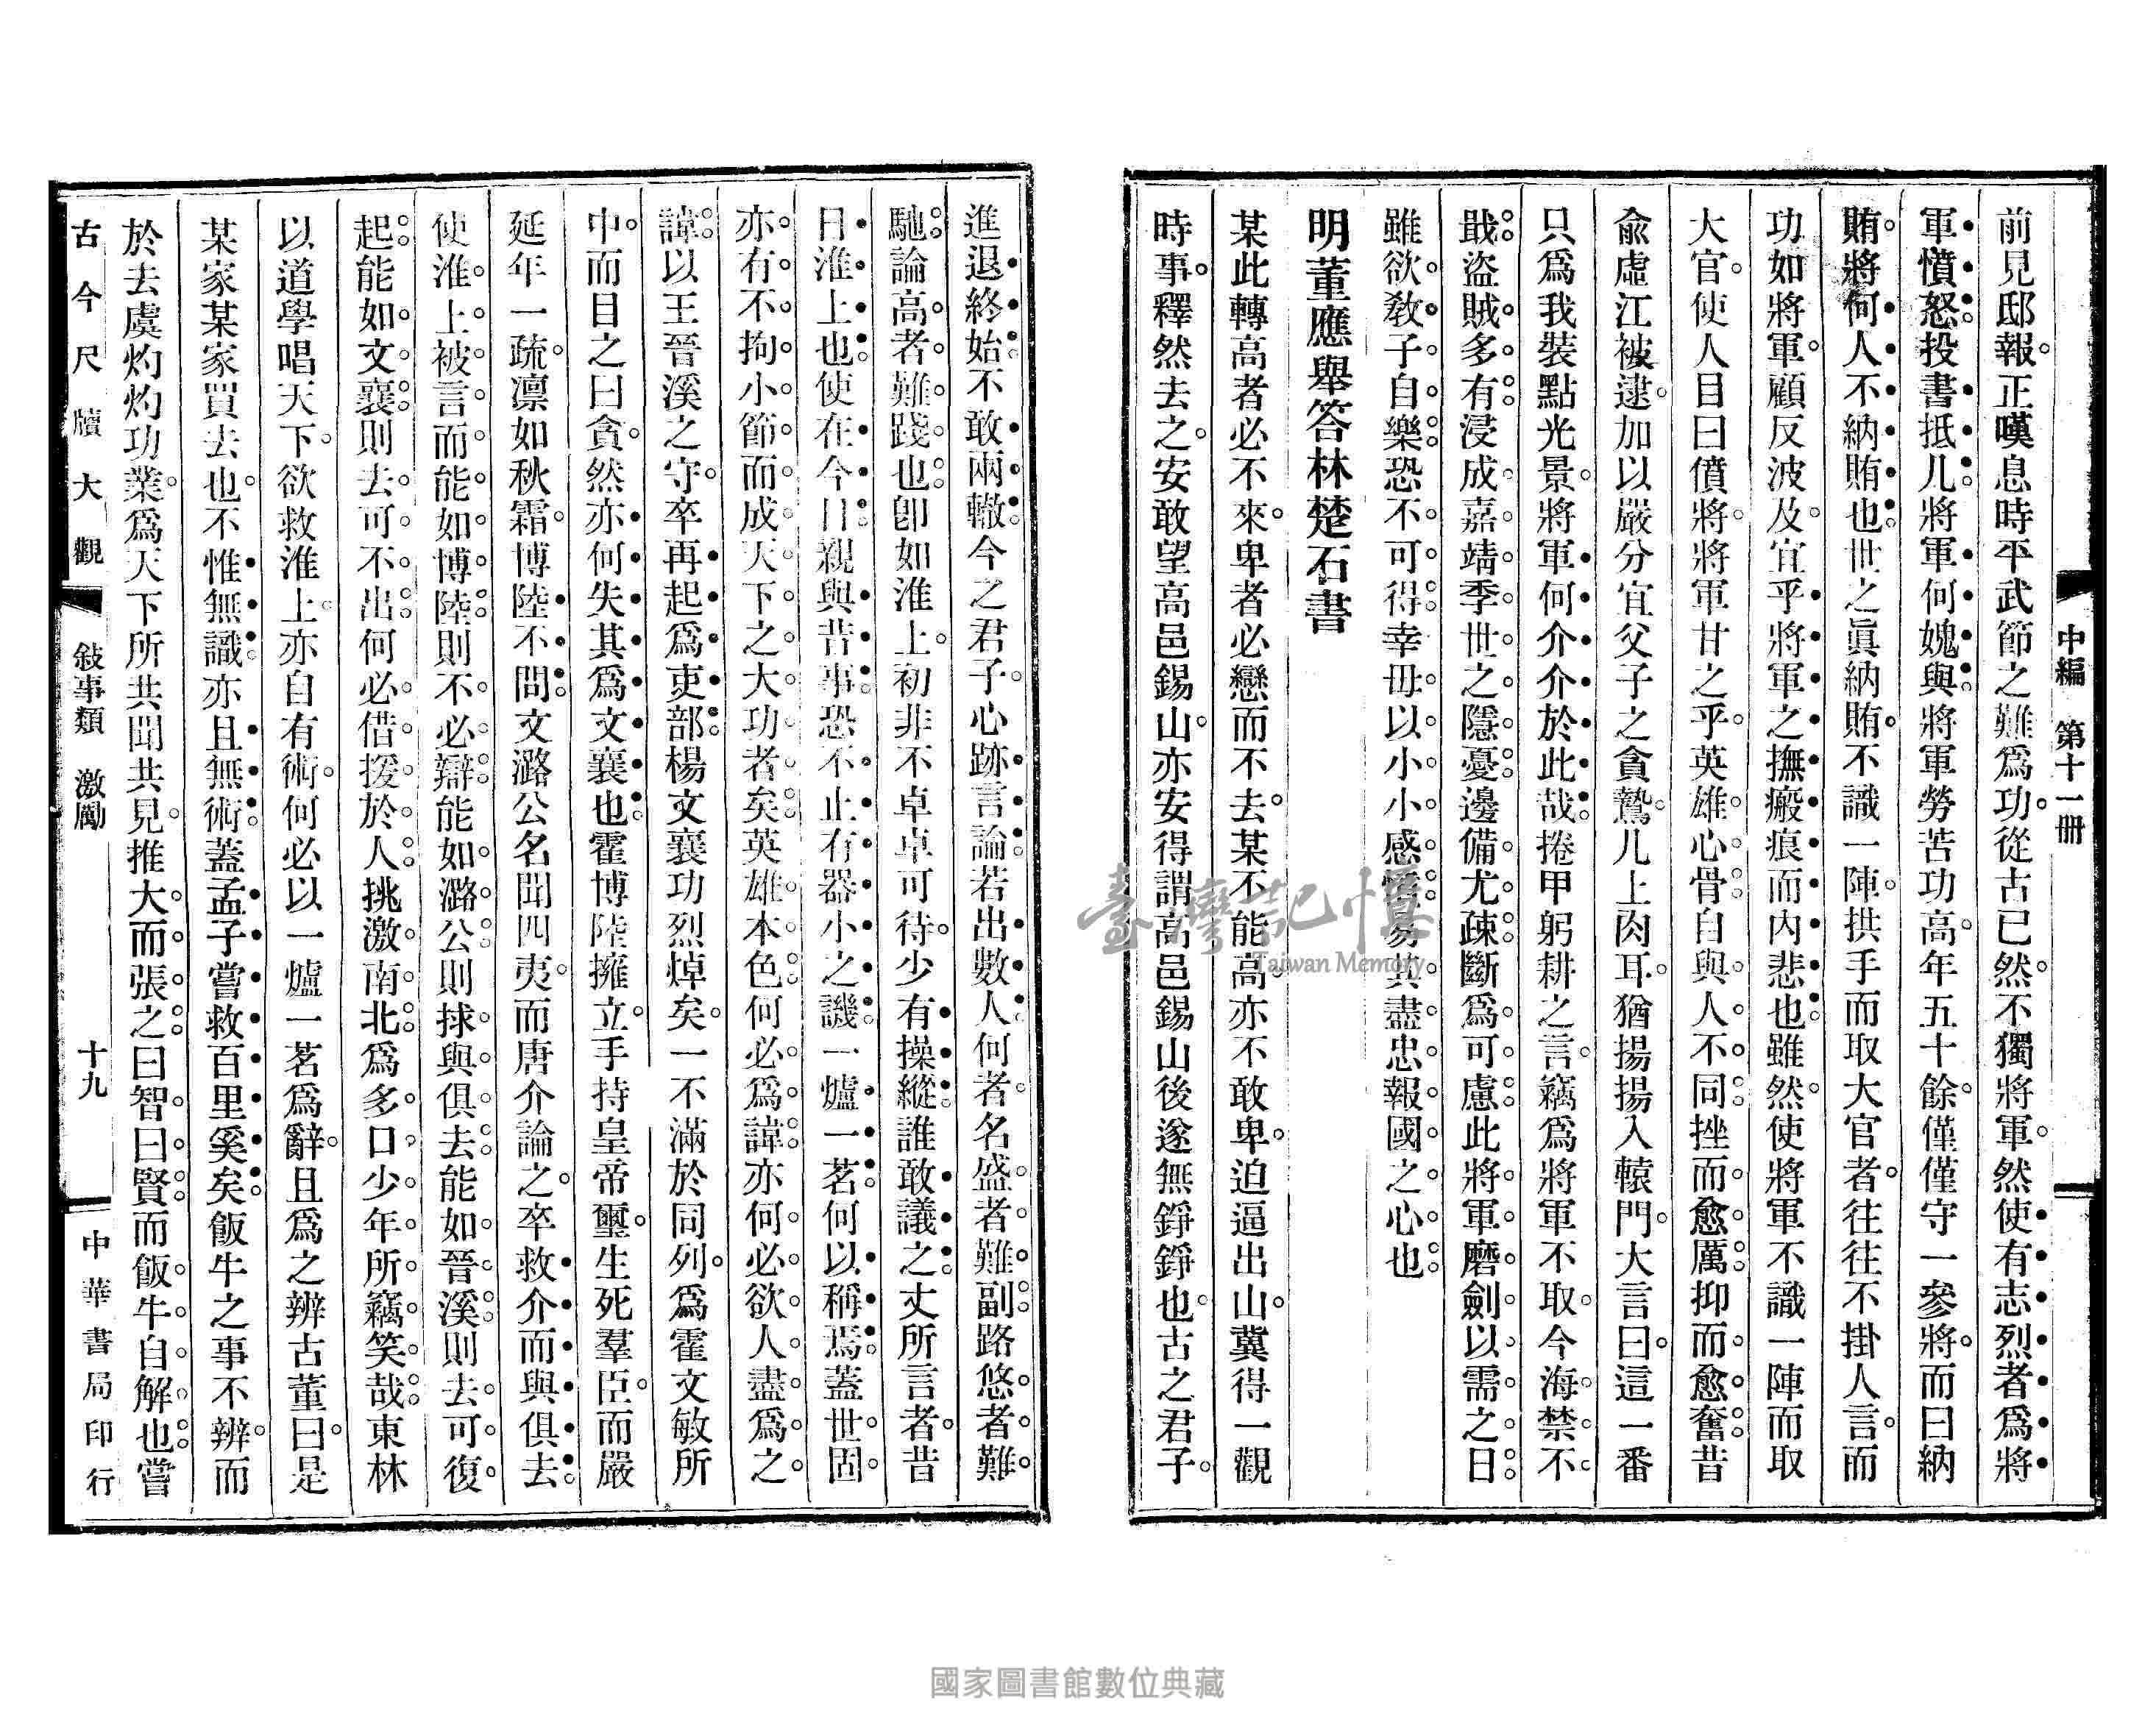 中編　第十一册
前見邸報。正嘆息時平武節之難爲功。從古已然。不獨將軍。然使有志烈者爲將
軍。憤怒投書抵几。將軍何媿與。將軍勞苦功高。年五十餘。僅僅守一參將。而曰納
賄。將何人不納賄也。世之眞納賄。不識一陣。拱手而取大官者。往往不掛人言。而
功如將軍。顧反波及。宜乎將軍之撫瘢痕而內悲也。雖然。使將軍不識一陣而取
大官。使人目曰僨將。將軍甘之乎。英雄心骨。自與人不同。挫而愈厲。抑而愈奮。昔
俞虛江被逮。加以嚴分宜父子之貪鷙。几上肉耳。猶揚揚入轅門。大言曰。這一番
只爲我裝點光景。將軍何介介於此哉。捲甲躬耕之言。竊爲將軍不取。今海禁不
戢。盜賊多有。浸成嘉靖季世之隱憂。邊備尤疎。斷爲可慮。此將軍磨劍以需之日。
雖欲敎子自樂。恐不可得。幸毋以小小感憤。易其盡忠報國之心也。
明董應舉答林楚石書
某此轉。高者必不來。卑者必戀而不去。某不能高。亦不敢卑。迫逼出山。冀得一觀
時事。釋然去之。安敢望高邑錫山。亦安得謂高邑錫山後遂無錚錚也。古之君子。
進退終始。不敢兩轍。今之君子。心跡言論。若出數人。何者。名盛者難副。路悠者難
馳。論高者難踐也。卽如淮上。初非不卓卓可待。少有操縱。誰敢議之。丈所言者。昔
日淮上也。使在今日。親與昔事。恐不止有器小之譏。一爐一茗。何以稱焉。蓋世固
亦有不拘小節而成天下之大功者矣。英雄本色。何必爲諱。亦何必欲人盡爲之
諱。以王晉溪之守。卒再起爲吏部。楊文襄功烈焯矣。一不滿於同列。爲霍文敏所
中。而目之曰貪。然亦何失其爲文襄也。霍博陸擁立。手持皇帝璽。生死羣臣。而嚴
延年一疏。凛如秋霜。博陸不問。文潞公名聞四夷。而唐介論之。卒救介而與俱去。
使淮上被言。而能如博陸。則不必辯。能如潞公。則捄與俱去。能如晉溪。則去可復
起。能如文襄。則去可不出。何必借援於人。挑激南北。爲多口少年所竊笑哉。東林
以道學唱天下。欲救淮上。亦自有術。何必以一爐一茗爲辭。且爲之辨古董曰。是
某家某家買去也。不惟無識。亦且無術。蓋孟子嘗救百里奚矣。飯牛之事不辨。而
於去虞灼灼功業爲天下所共聞共見。推大而張之。曰智曰賢。而飯牛自解也。嘗
古今尺牘大觀　敍事類　激勵　十九　中華書局印行
臺灣記憶
Taiwan Memory
國家圖書館數位典藏